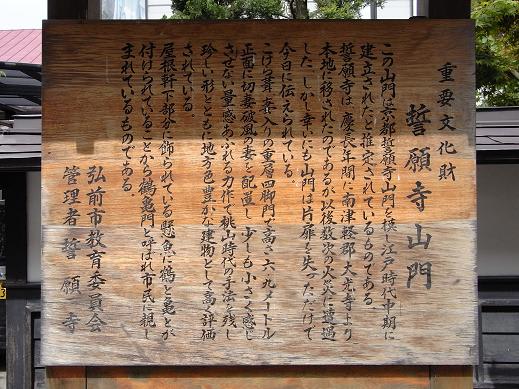 重要文化財
誓願寺山門
この山門は京都誓願寺山門を模し江戸時代中期に
建立されたと推定されているものである。
誓願寺は、慶長年間に南津軽郡大光寺より
本地に移されたのであるが以後数次の火災に遭遇
した。しかし、幸いにも山門は片扉を失っただけで
今日に伝えられている。
こけら葺、妻入りの重層四脚門で高さ六・九メートル
正面に切妻破風の妻を配置し少しも小さく感じ
させない量感あふれる力作で桃山時代の手法を残し
珍しい形とともに地方色豊かな建物として高く評価
されている。
屋根軒下部分に飾られている懸魚に鶴と亀とが
付けられていることから鶴亀門と呼ばれ市民に親し
まれているものである。
弘前市教育委員会
管理者 誓願寺